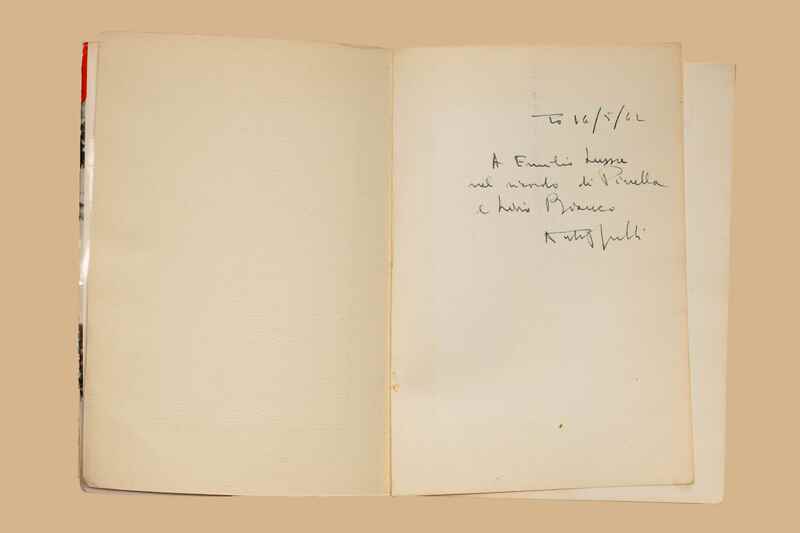 To 16/5/62
A Emilio Lussu
nel ricordo di Pinella
e Livio Bianco